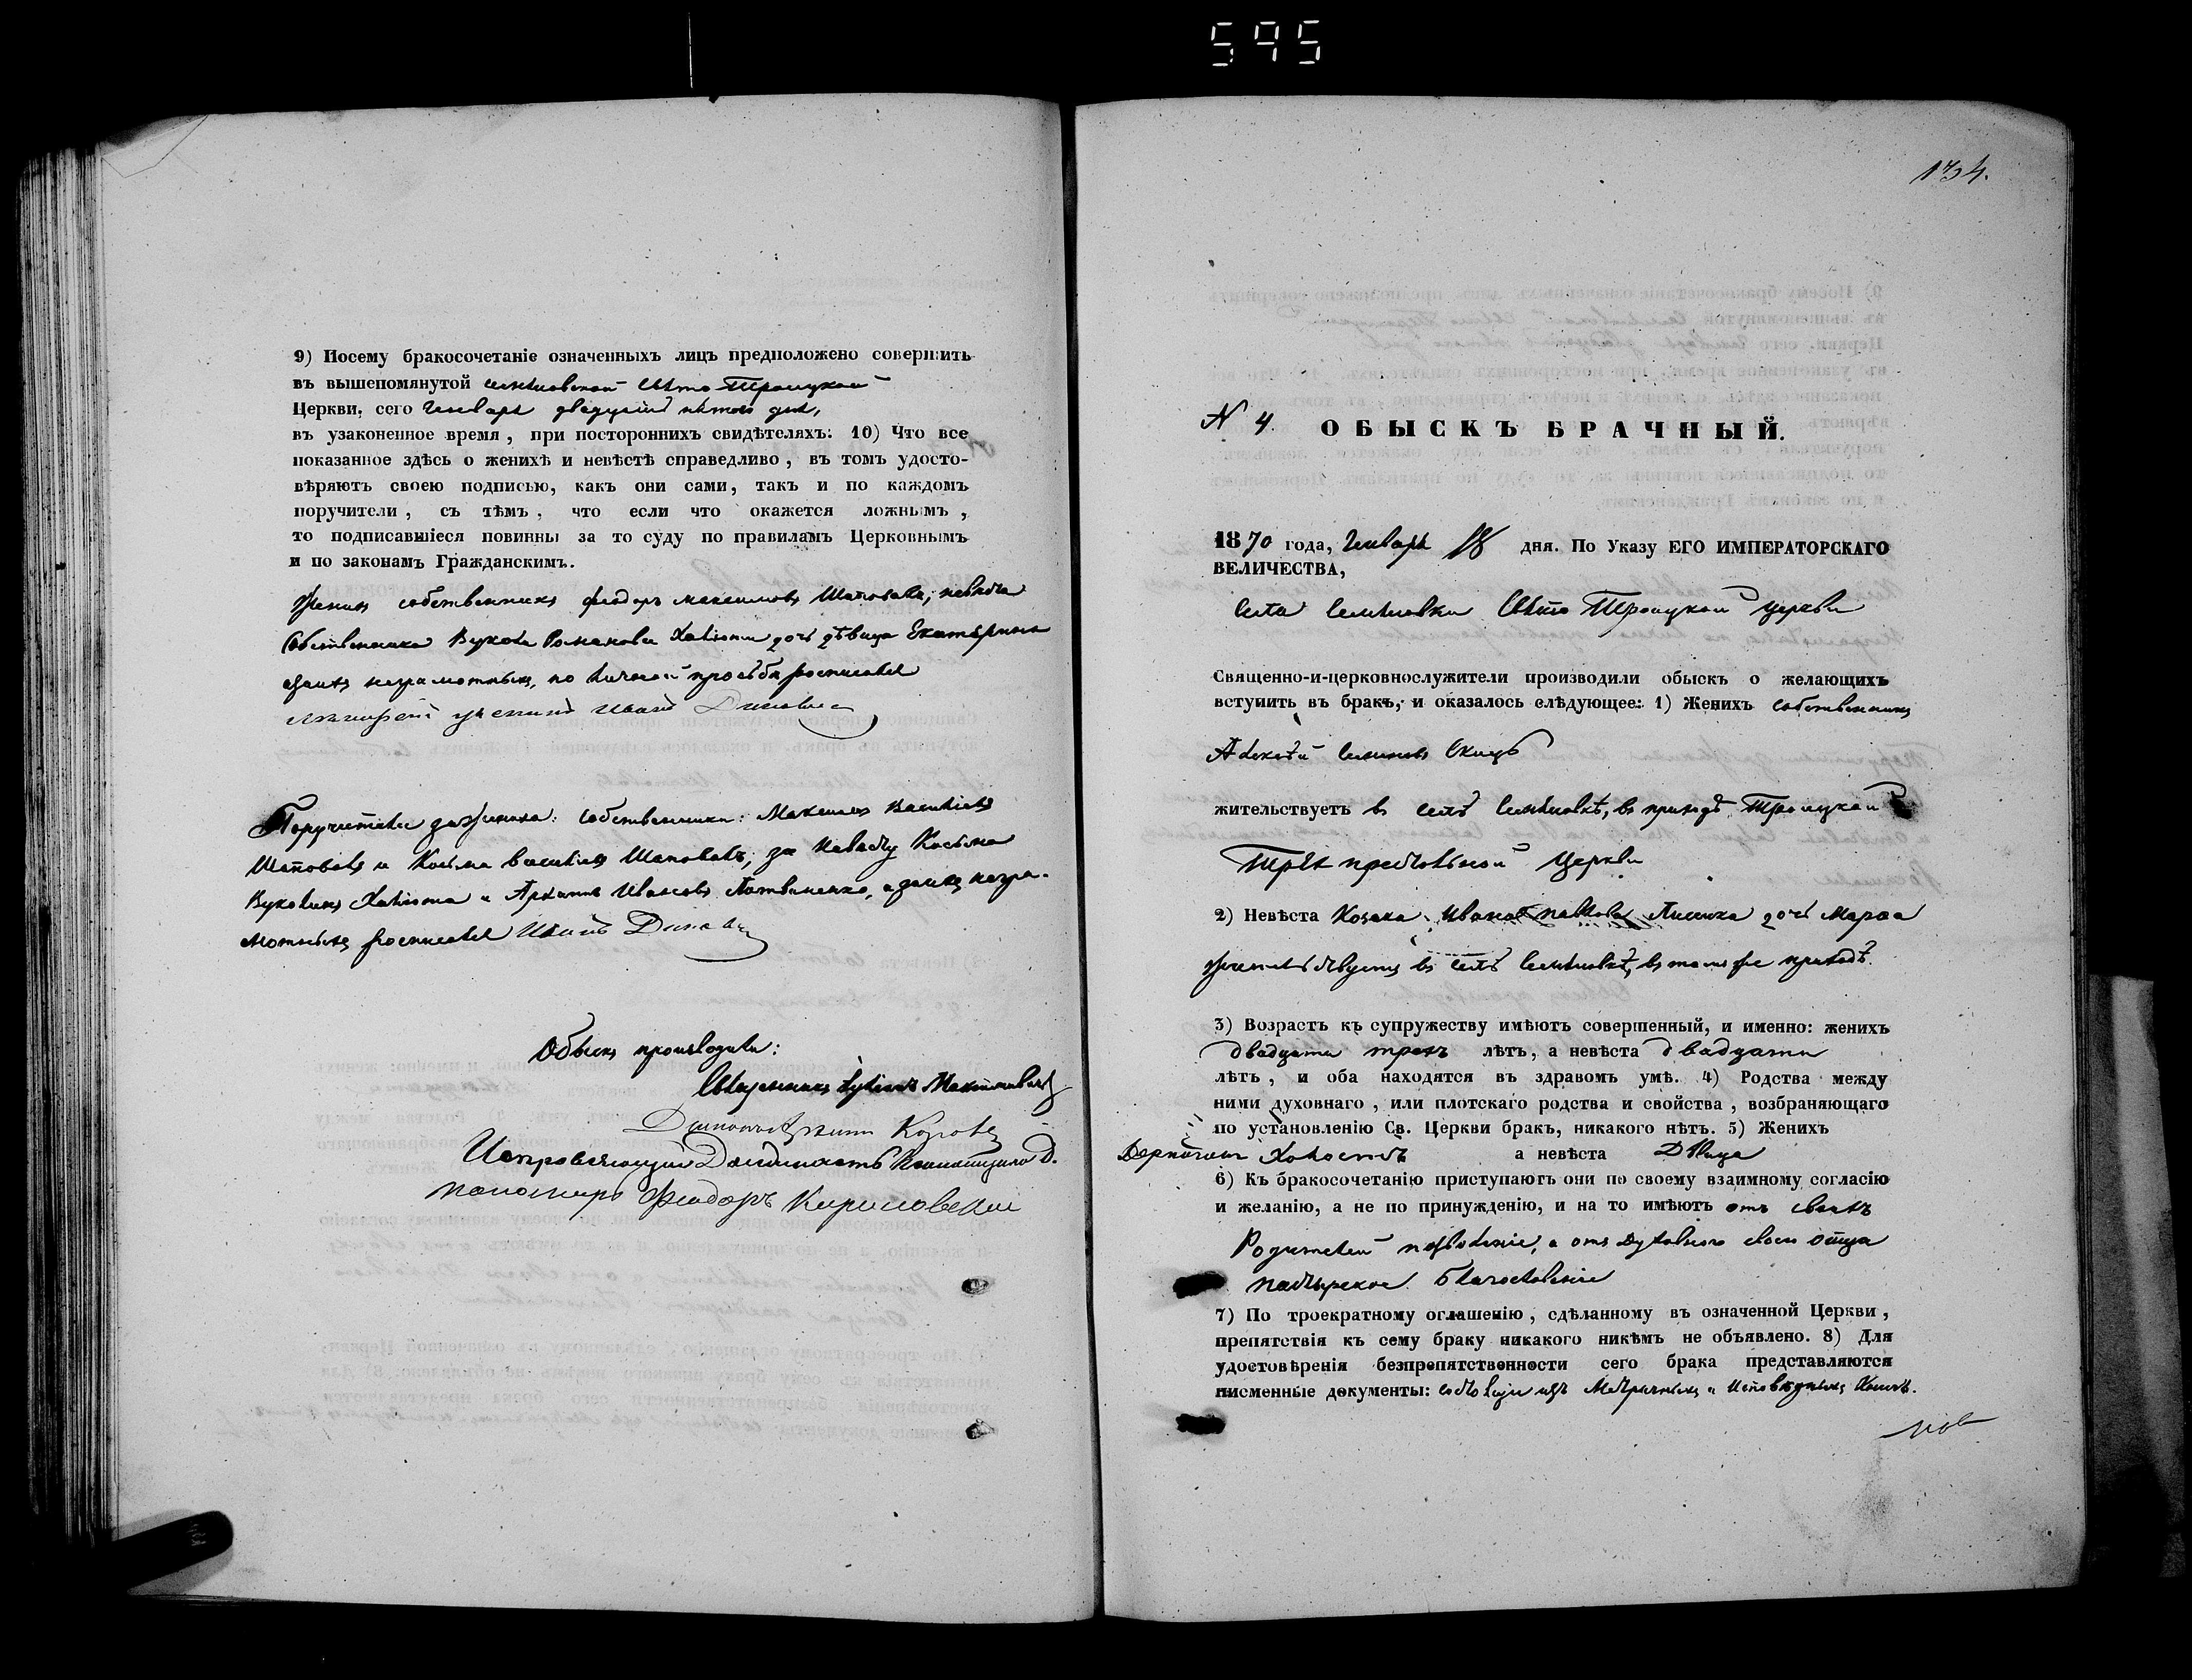 595
9) Посему бракосочетаніе означенныхъ лицъ предположено совершить
въ вышепомянутой Семіновской Свято Троицкой
Церкви, сего Генваря двадцать пятого дня,
въ узаконенное время, при постороннихъ свидѣтеляхъ: 10) Что все
показанное здѣсь о женихѣ и невѣстѣ справедливо, въ томъ удосто-
вѣряютъ своею подписью, какъ они сами, такъ и по каждомъ
поручители, съ тѣмъ, что если что окажется ложнымъ,
то подписавшіеся повинны за то суду по правиламъ Церковнымъ
и по законамъ Гражданскимъ.
Женихъ собственникъ Феодоръ Максимовъ Шаповалъ, невѣста
Собственника Вукола Романова дочь дѣвица Екатерина
а за ихъ неграмотныхъ, по личной прозьбѣ росписался
Иванъ
Поручители за жениха: собственники: Максимъ Васильевъ
Шаповалъ и Косьма Васильевъ Шаповалъ, за невѣсту Косьма
Вуколинъ и Архипъ Ивановъ Литвиненко, а за ихъ негра-
мотныхъ росписался Иванъ
Обыскъ производили:
Священникъ Максимовичъ
Исправляющій Должность Псаломщика
пономарь Феодоръ
134.
N 4. ОБЫСКЪ БРАЧНЫЙ.
1870 года, Генваря 18 дня. По Указу ЕГО ИМПЕРАТОРСКАГО
ВЕЛИЧЕСТВА,
Села Семіновки Свято Троицкой Церкви
Священно-и-церковнослужители производили обыскъ о желающихъ
вступить въ бракъ, и оказалось слѣдующее: 1) Женихъ собственникъ
Алексѣй Семеновъ
жительствуетъ въ селѣ Семіновкѣ, въ приходѣ Троицкой
Трехпрестольной Церкви
2) Невѣста Козака Ивана Павлова дочь Марѳа
жительствуетъ въ селѣ Семіновкѣ, въ томъ же приходѣ.
3) Возрастъ къ супружеству имѣютъ совершенный, и именно: женихъ
двадцати трехъ лѣтъ, а невѣста двадцати
лѣтъ, и оба находятся въ здравомъ умѣ. 4) Родства между
ними духовнаго, или плотскаго родства и свойства, возбраняющаго
по установленію Св. Церкви бракъ, никакого нѣтъ. 5) Женихъ
Холостъ а невѣста Дѣвица
6) Къ бракосочетанію приступаютъ они по своему взаимному согласію
и желанію, а не по принужденію, и на то имѣютъ отъ своихъ
Родителей позволеніе, а отъ Духовнаго своего отца
пастырское благословеніе
7) По троекратному оглашенію, сдѣланному въ означенной Церкви,
препятствія къ сему браку никакого никѣмъ не объявлено. 8) Для
удостовѣренія безпрепятственности сего брака представляются
писменные документы: изъ Метричныхъ и Исповѣдныхъ Книгъ.